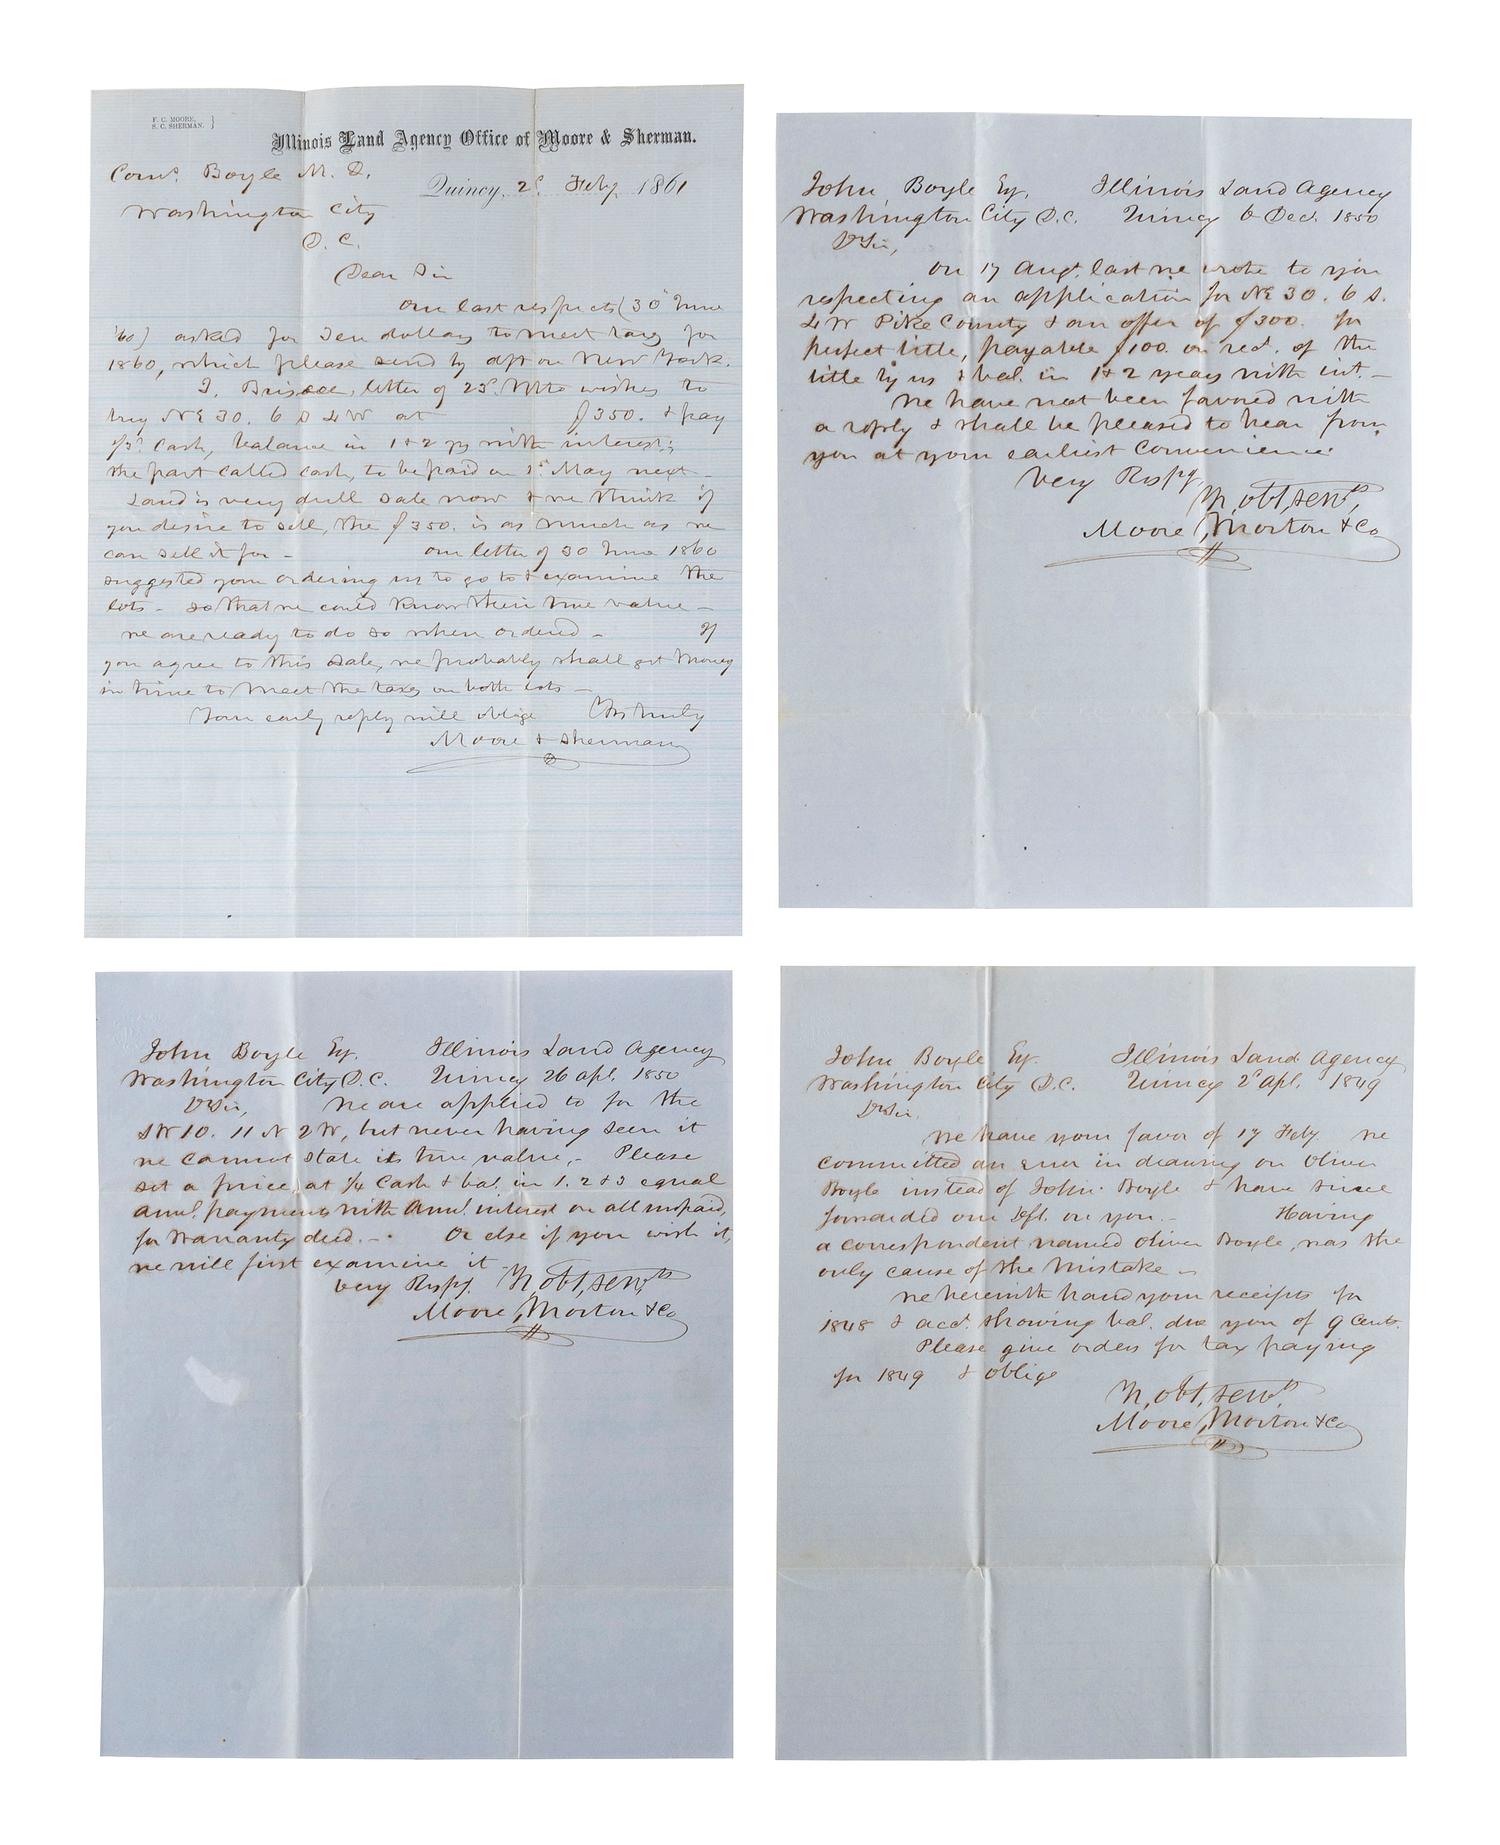 F. C. MOORE,
S. C. SHERMAN. }
Illinois Land Agency Office of Moore & Sherman.
Corns. Boyle M. D.
Quincy, 2d Feby 1861
Washington City
D. C.
Dear Sir
Our last respects (30 June
'60) asked for Ten dollars to meet taxes for
1860, which please send by dft on New York.
T. Briscoe, letter of 23d Ulto wishes to
buy NE 30. 6 S 4 W at $350. & pay
1/3d Cash, balance in 1 & 2 yrs with interest;
the part called cash, to be paid on 1st May next -
Land is very dull sale now & we think if
you desire to sell, the $350. is as much as we
can sell it for - Our letter of 30 June 1860
suggested your ordering us to go to & examine the
lots - so that we could know their true value -
we are ready to do so when ordered - If
you agree to this sale, we probably shall get money
in time to meet the taxes on both lots -
Your early reply will oblige Yrs truly
Moore & Sherman
John Boyle Esq. Illinois Land Agency
Washington City D.C. Quincy 6 Dec. 1850
D Sir,
On 17 Augt. last we wrote to you
respecting an application for NE 30. 6 S.
4 W Pike County & an offer of $300. for
perfect title, payable $100. on recd. of the
title by us & bal. in 1 & 2 years with int. -
We have not been favored with
a reply & shall be pleased to hear from
you at your earliest Convenience.
Very Respy.
Yr, obt, servts,
Moore, Morton & Co
John Boyle Esq. Illinois Land Agency
Washington City D.C. Quincy 26 apl. 1850
D Sir, We are applied to for the
SW 10. 11 N 2 W, but never having seen it
we cannot state its true value, - Please
set a price, at 1/4 Cash & bal. in 1. 2 & 3 equal
annl. payments with Annl. interest on all unpaid,
for Warranty deed. - Or else if you wish it,
we will first examine it -
Very Respy. Yr, obt, servts
Moore, Morton & Co
John Boyle Esq. Illinois Land Agency
Washington City D.C. Quincy 2d Apl. 1849
D Sir.
We have your favor of 17 Feby. We
committed an error in drawing on Oliver
Boyle instead of John Boyle & have since
forwarded our Dft. on you. - Having
a correspondent named Oliver Boyle, was the
only cause of the mistake -
We herewith hand your receipts for
1848 & acct. showing bal. due you of 9 Cents.
Please give orders for tax paying
for 1849 & oblige
Yr, obt, servts,
Moore, Morton & Co